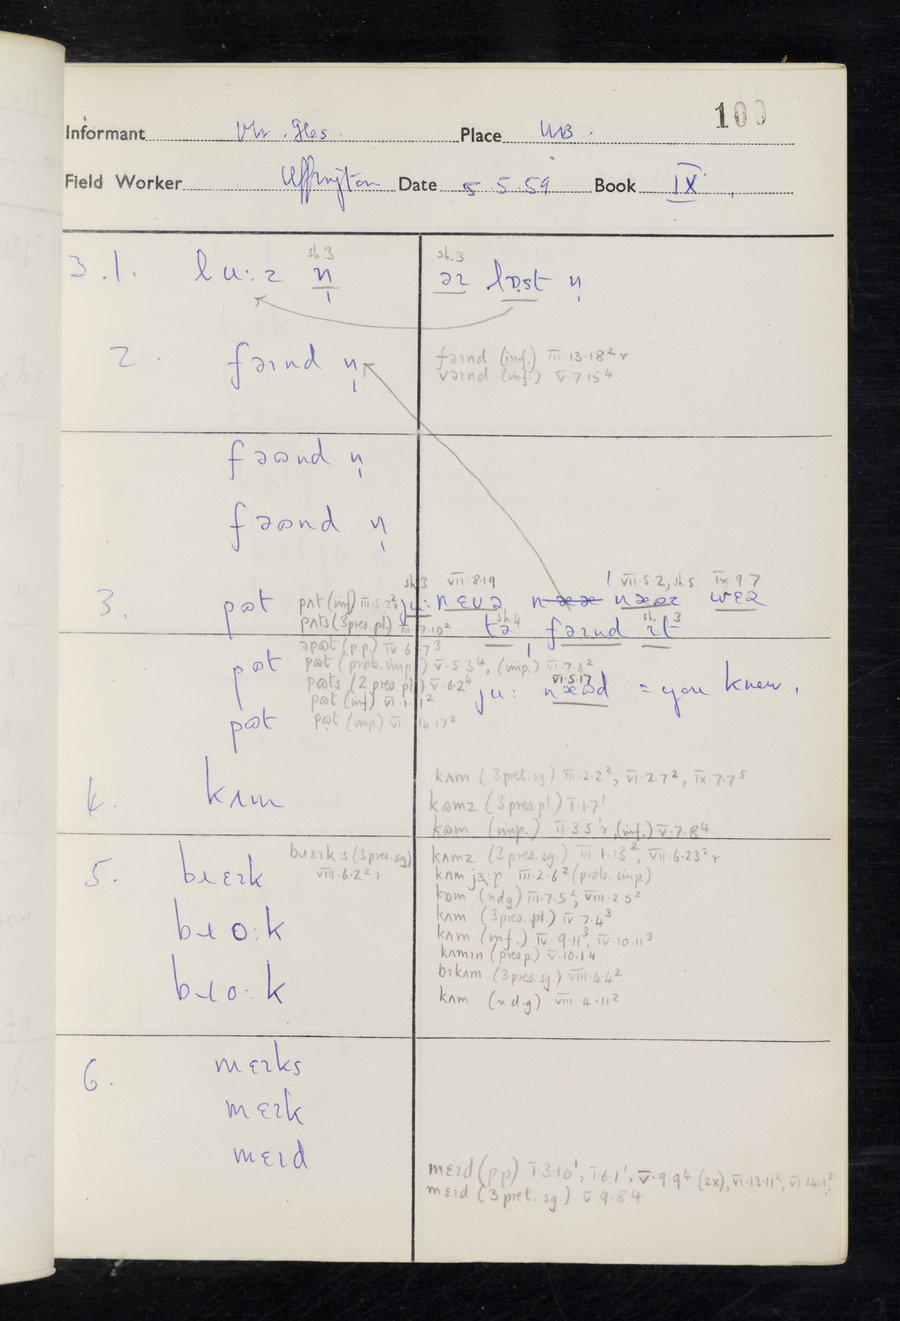 100
Informant Mr. Iles. Place UB.
Field Worker Uffington Date 5.5.59 Book IX.
sh.3
sh.3
3.1. lu:z n̩
əɪ lɒst n̩
2. fəɪnd n̩
fəɪnd (inf.) III.13.18² r
vəɪnd (inf.) V.7.15⁴
fəʊnd n̩
fəʊnd n̩
sh.3 VII.8.19 VII.5.2, sh.5 IX.9.7
3. pɷt
pʌt (inf) III.5.2² r
ju: nɛvə næəɪ wɛə
pʌts (3 pres. pl.) III.7.10²
sh.4 sh.3
tə fəɪnd ɪt
əpɷt (p.p.) IV.6.7³
pɷt
pɷt (prob. imp.) V.5.3⁴, (imp.) VII.7.6²
pɷts (2 pres. pl.) V.6.2⁴
VI.5.17
ju: = you knew.
pɷt (inf) VI.1.1²
pɷt
pɷt (imp.) VI.14.17²
4. kʌm
kʌm (3 pret. sg.) III.2.2², VI.2.7², IX.7.7⁵
kɷmz (3 pres. pl.) I.1.7¹
kɷm (imp.) II.3.5¹ r, (inf.) V.7.8⁴
5. bɹɛɪk
bɹɛɪks (3 pres. sg)
VIII.6.2² r
kʌmz (3 pres. sg.) III.1.13², VII.6.23² r
kʌm III.2.6² (prob. imp.)
kɷm (ndg) III.7.5², VIII.2.5²
bɹo:k
kʌm (3 pres. pl.) IV.7.4³
kʌm (inf.) IV.9.11³, IV.10.11³
kʌmɪn (pres p.) V.10.1⁴
bɹo:k
bɪkʌm (3 pres. sg.) VIII.4.4²
kʌm (n.d.g) VIII.4.11²
6. mɛɪks
mɛɪk
mɛɪd
mɛɪd (p.p) I.3.10¹, I.6.1¹, V.9.9⁴ (2x), VI.13.11², VI.14.1²
mɛɪd (3 pret. sg.) V.9.8⁴